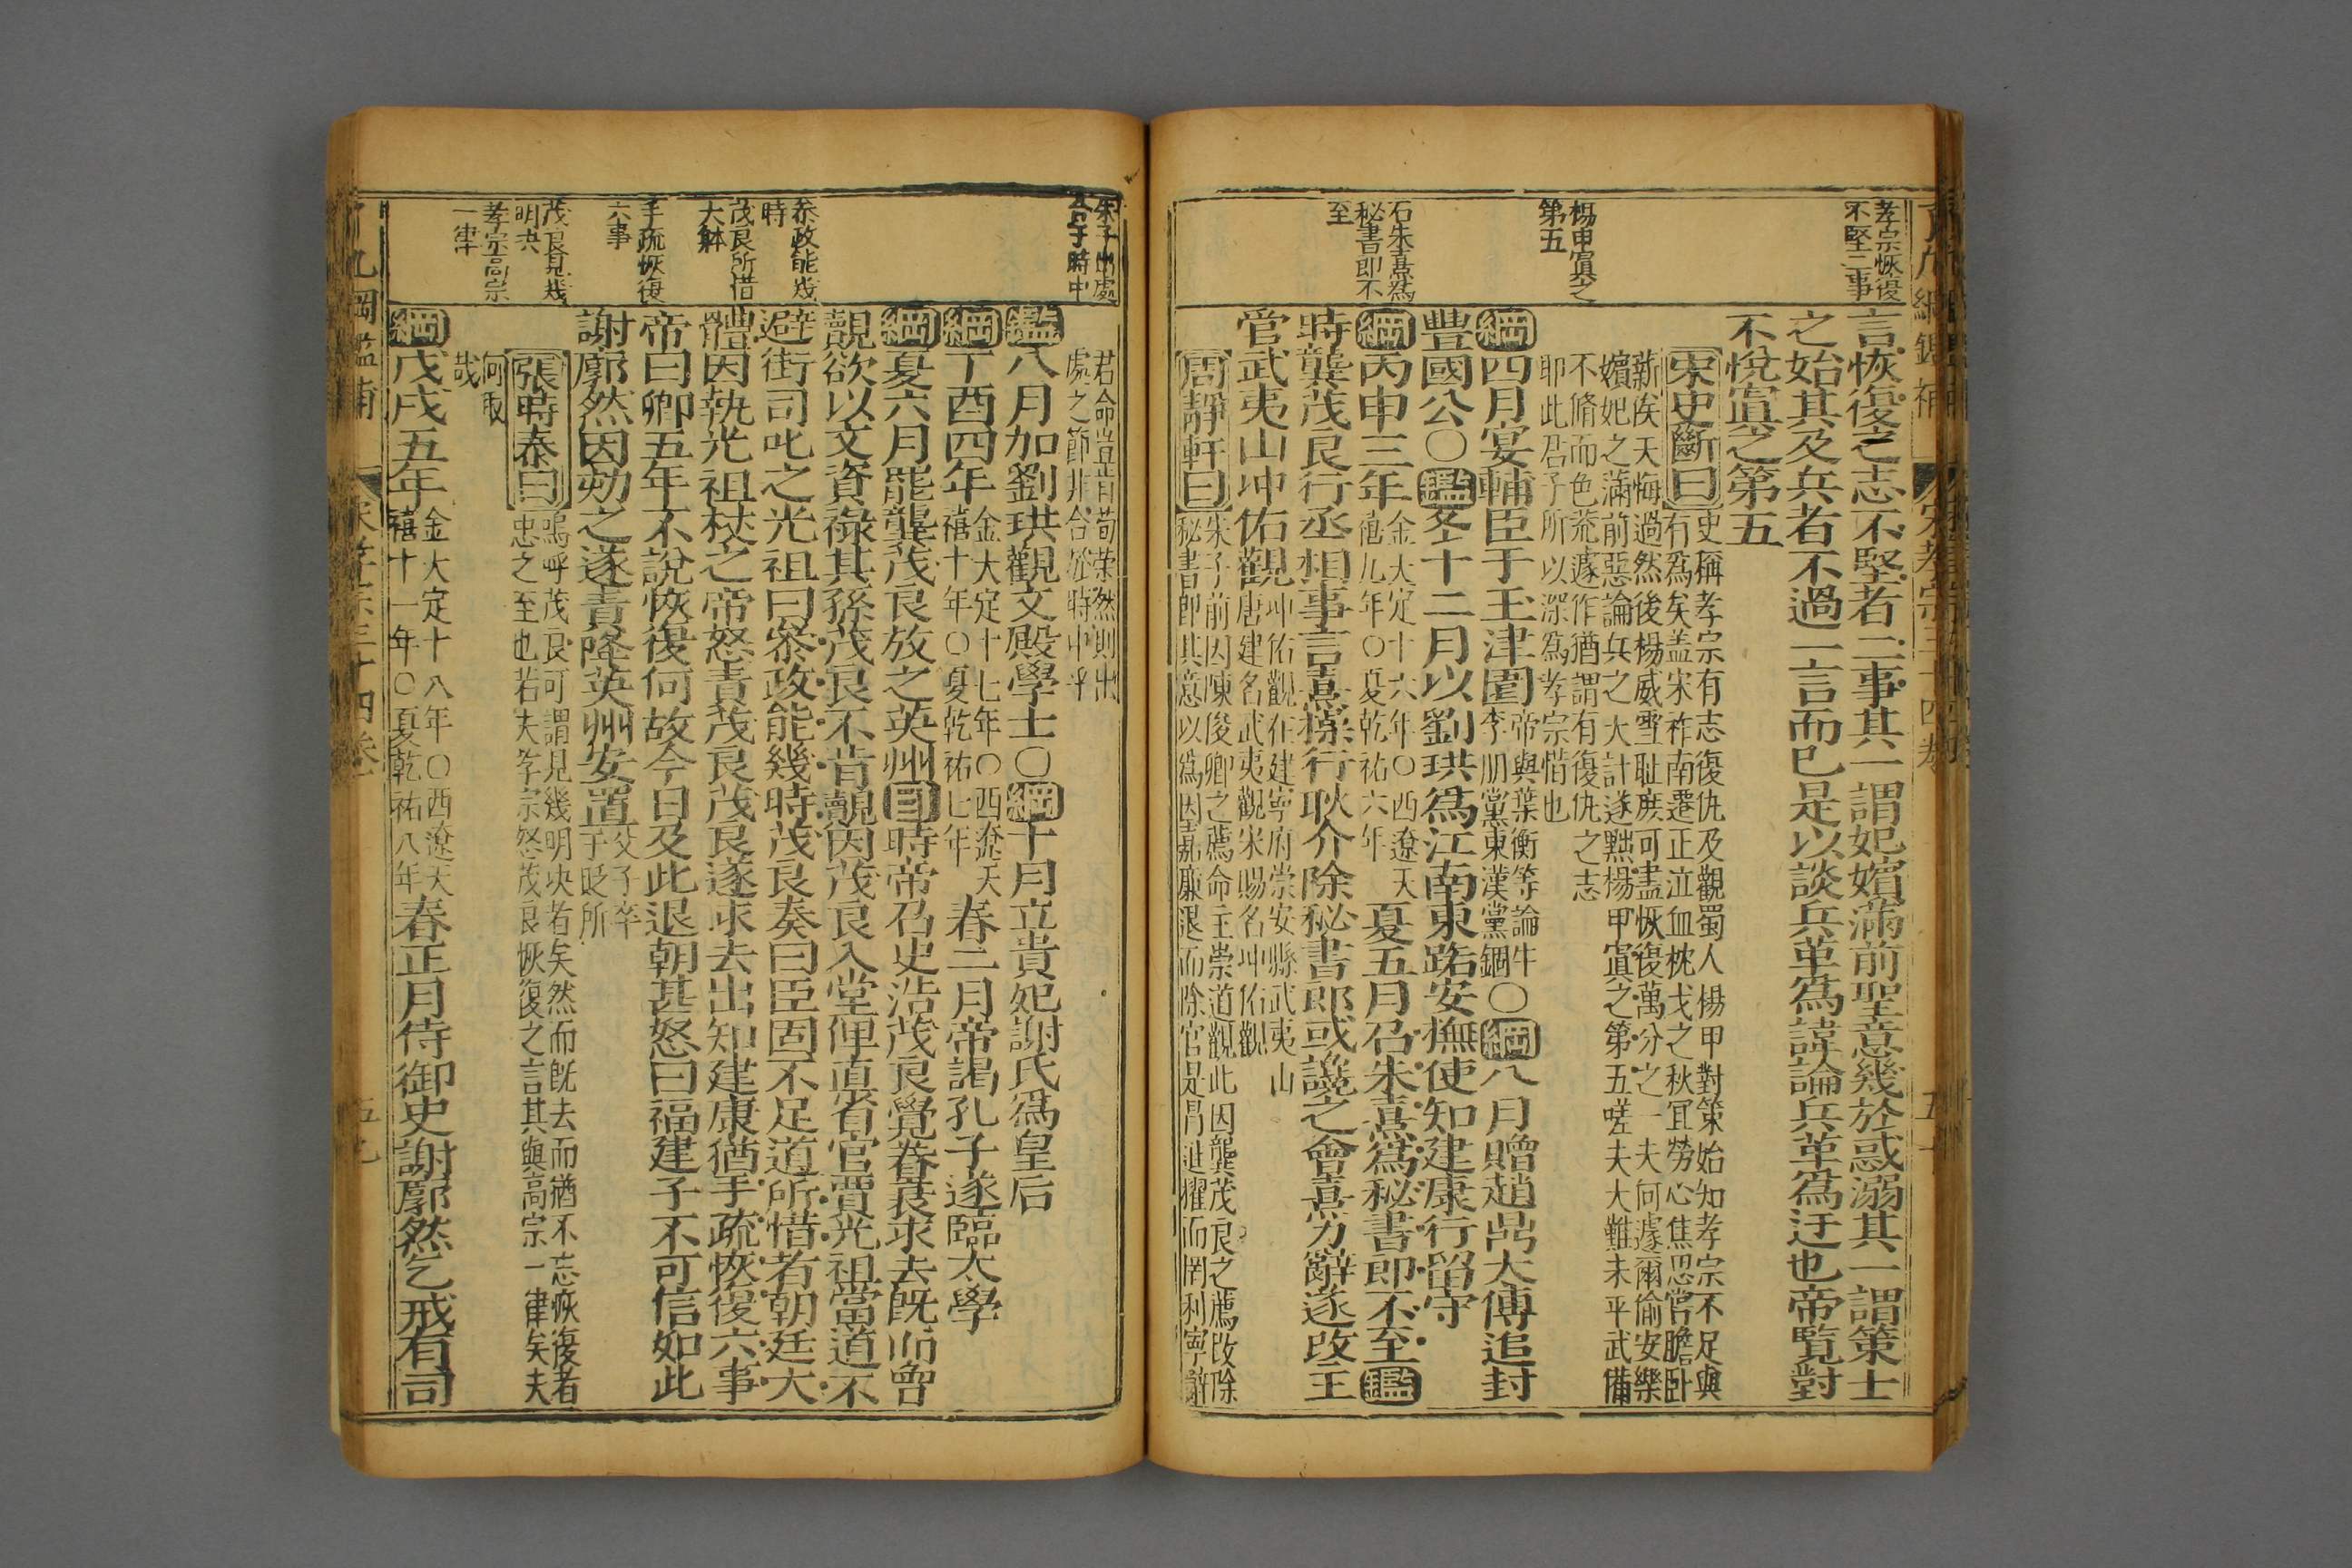 孝宗恢復
不堅二事
楊甲寘之
第五
石朱熹爲
秘書郎不
至
言恢復之志不堅者二事其一謂妃嬪滿前聖意幾於惑溺其一謂策士
之始其及兵者不過一言而已是以談兵革爲諱論兵革爲迂也帝覽對
不悅寘之第五
宋史斷曰史稱孝宗有志復仇及觀蜀人楊甲對策始知孝宗不足與
有爲矣盖宋祚南遷正泣血枕戈之秋冝勞心焦思嘗膽臥
新俟天悔過然後楊威雪耻庻可盡恢復萬分之一夫何遽爾偷安樂
嬪妃之滿前惡論兵之大計遂黜楊甲寘之第五嗟夫大難未平武備
不脩而色荒遽作猶謂有復仇之志
耶此君子所以深爲孝宗惜也
綱四月宴輔臣于玉津園帝與葉衡等論牛
李朋黨東漢黨錮〇綱八月贈趙鼎大傅追封
豐國公〇鑑冬十二月以劉珙爲江南東路安撫使知建康行留守
綱丙申三年金大定十六年〇西遼天
禧九年〇夏乾祐六年夏五月召朱熹爲秘書郎不至鑑
時龔茂良行丞相事言熹操行耿介除秘書郎或讒之會熹力辭遂改主
管武夷山冲佑觀冲佑觀在建寧府崇安縣武夷山
唐建名武夷觀宋賜名冲佑觀
周靜軒曰朱子前因陳俊卿之薦命主崇道觀此因龔茂良之薦改除
秘書郎其意以爲因嘉廉退而除官是冐進擢而罔利寧辭
朱子出處
合于時中
叅政能幾
時
茂良所惜
大躰
手疏恢復
六事
茂良見幾
明决
孝宗高宗
一律
君命豈肯苟榮然則出
處之節非合於時中乎
鑑八月加劉珙觀文殿學士〇綱十月立貴妃謝氏爲皇后
綱丁酉四年金大定十七年〇西遼天
禧十年〇夏乾祐七年春二月帝謁孔子遂臨太學
綱夏六月罷龔茂良放之英州目時帝召史浩茂良覺眷衰求去旣而曾
覿欲以文資祿其孫茂良不肯覿因茂良入堂俾直省官賈光祖當道不
避街司叱之光祖曰叅政能幾時茂良奏曰臣固不足道所惜者朝廷大
體因執光祖杖之帝怒責茂良茂良遂求去出知建康猶手疏恢復六事
帝曰卿五年不說恢復何故今日及此退朝甚怒曰福建子不可信如此
謝廓然因劾之遂責降英州安置父子卒
于貶所
張時泰曰嗚呼茂良可謂見幾明决者矣然而旣去而猶不忘恢復者
忠之至也若夫孝宗怒茂良恢復之言其與高宗一律矣夫
何取
哉
綱戊戌五年金大定十八年〇西遼天
禧十一年〇夏乾祐八年春正月侍御史謝廓然乞戒有司